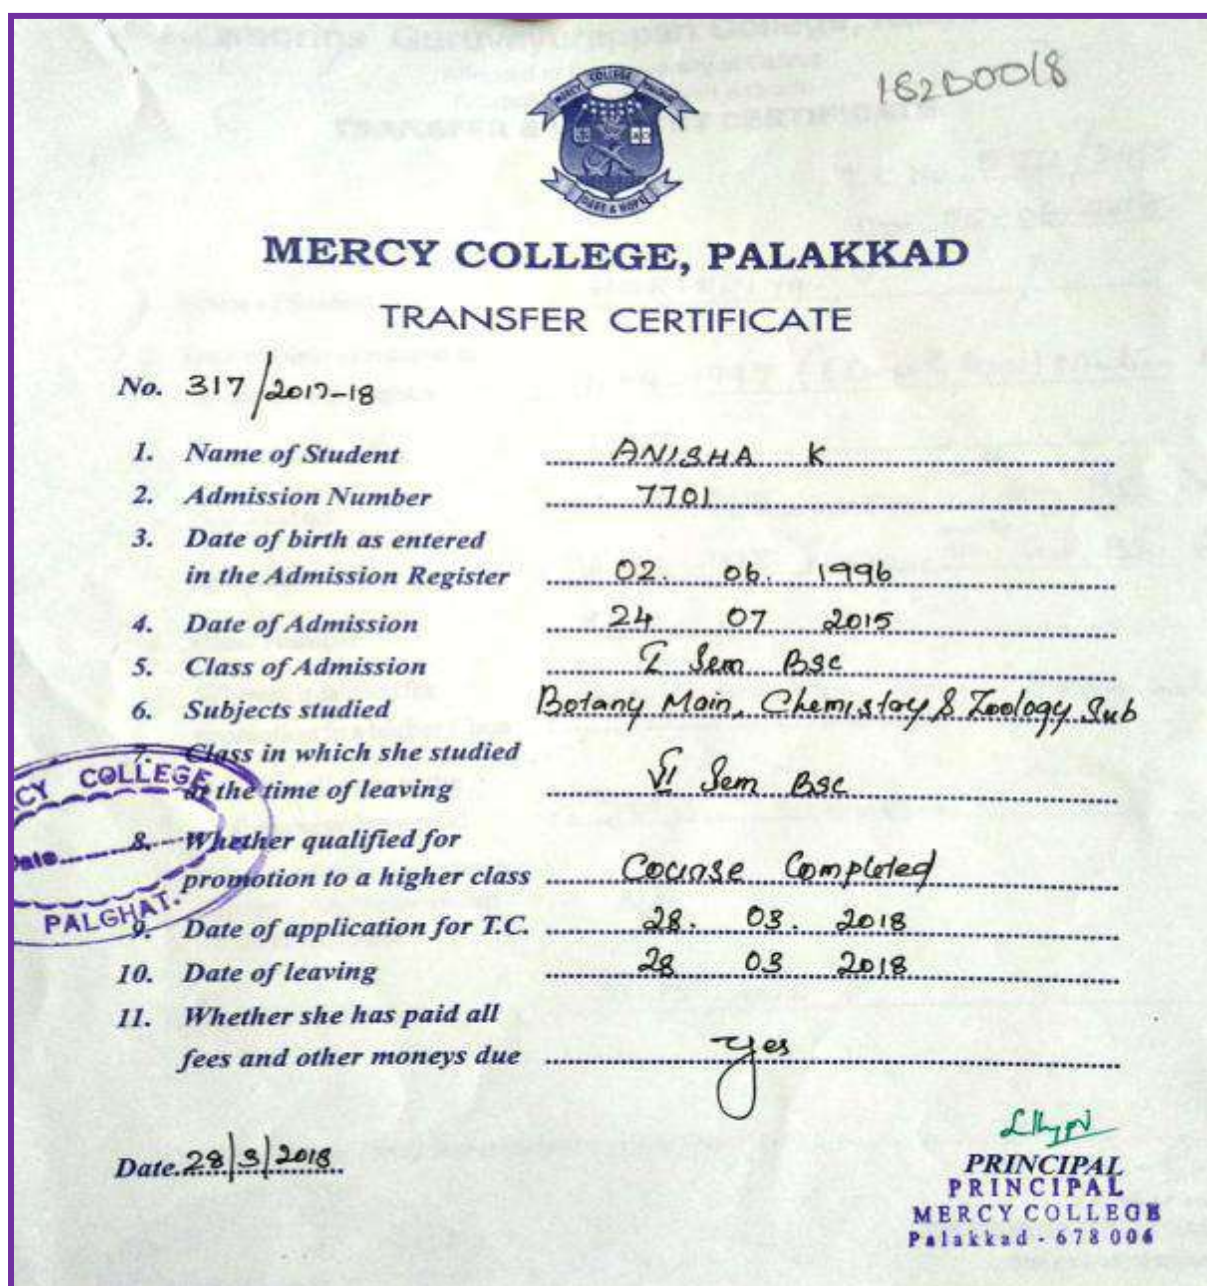 182B0018
MERCY COLLEGE, PALGHAT
DARE & HOPE
MERCY COLLEGE, PALAKKAD
TRANSFER CERTIFICATE
No. 317/2017-18
1. Name of Student ANISHA K
2. Admission Number 7701
3. Date of birth as entered
in the Admission Register 02. 06. 1996
4. Date of Admission 24 07 2015
5. Class of Admission I Sem BSc
6. Subjects studied Botany Main, Chemistry & Zoology Sub
7. Class in which she studied
at the time of leaving VI Sem BSc
8. Whether qualified for
promotion to a higher class Course Completed
9. Date of application for T.C. 28. 03. 2018
10. Date of leaving 28 03 2018
11. Whether she has paid all
fees and other moneys due Yes
COLLEGE
Date
PALGHAT.
Date. 28/3/2018
PRINCIPAL
PRINCIPAL
MERCY COLLEGE
Palakkad - 678 006